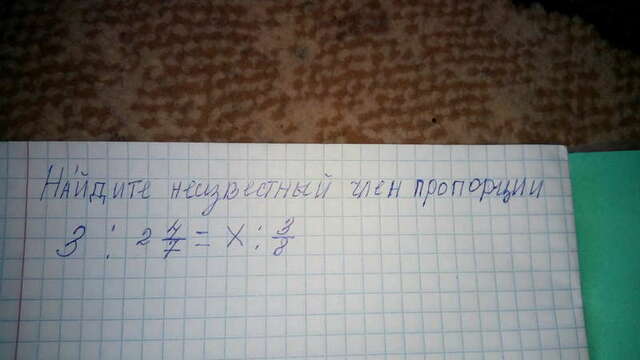 Найдите неизвестный член пропорции
3 : 2 4/7 = x : 3/8